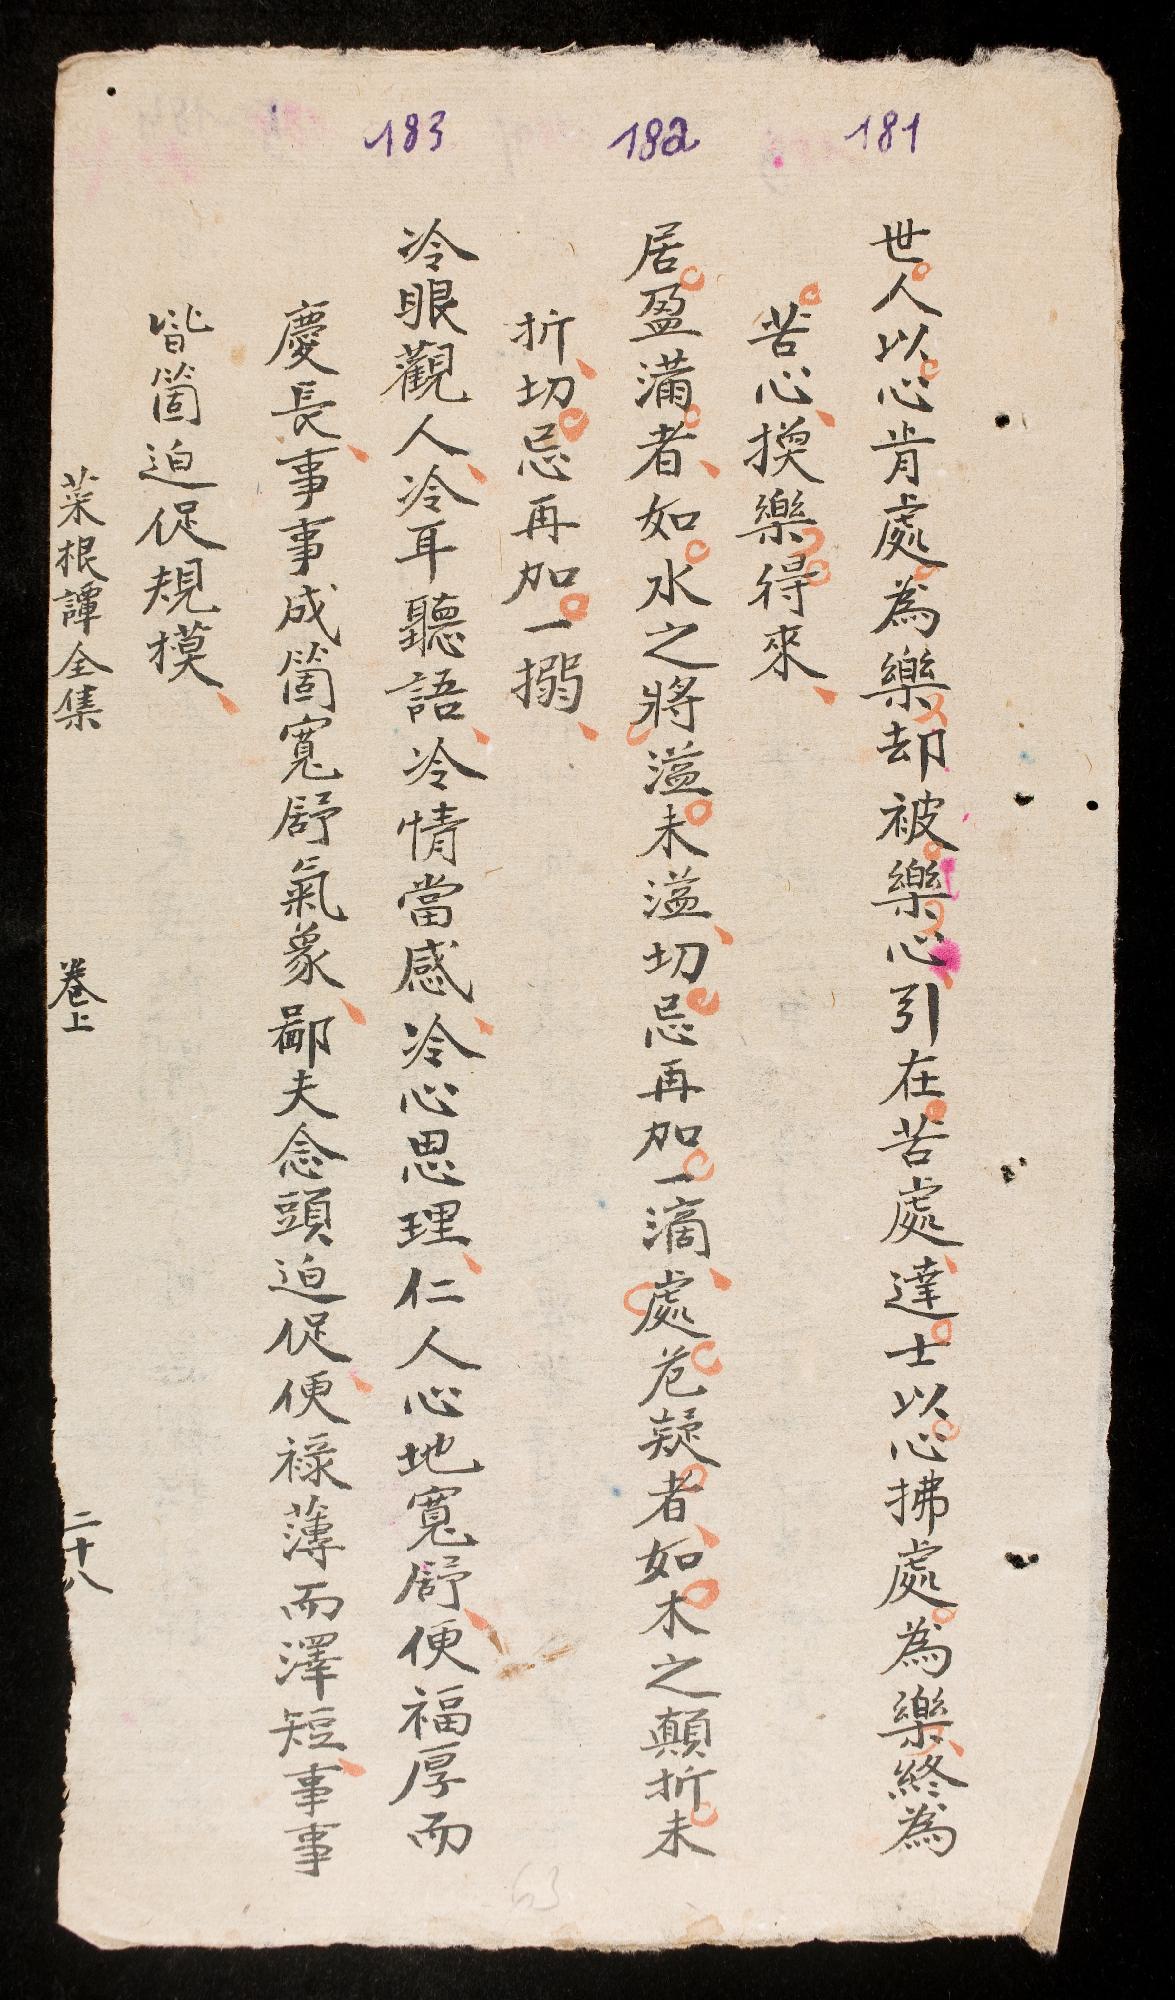 181
世人以心肯處為樂却被樂心引在苦處達士以心拂處為樂終為
苦心換樂得來
182
居盈滿者如水之將溢未溢切忌再加一滴處危疑者如木之顛折未
折切忌再加一搦
183
冷眼觀人冷耳聽語冷情當感冷心思理仁人心地寬舒便福厚而
慶長事事成箇寬舒氣象鄙夫念頭迫促便祿薄而澤短事事
皆箇迫促規模
菜根譚全集 卷上 二十八
63